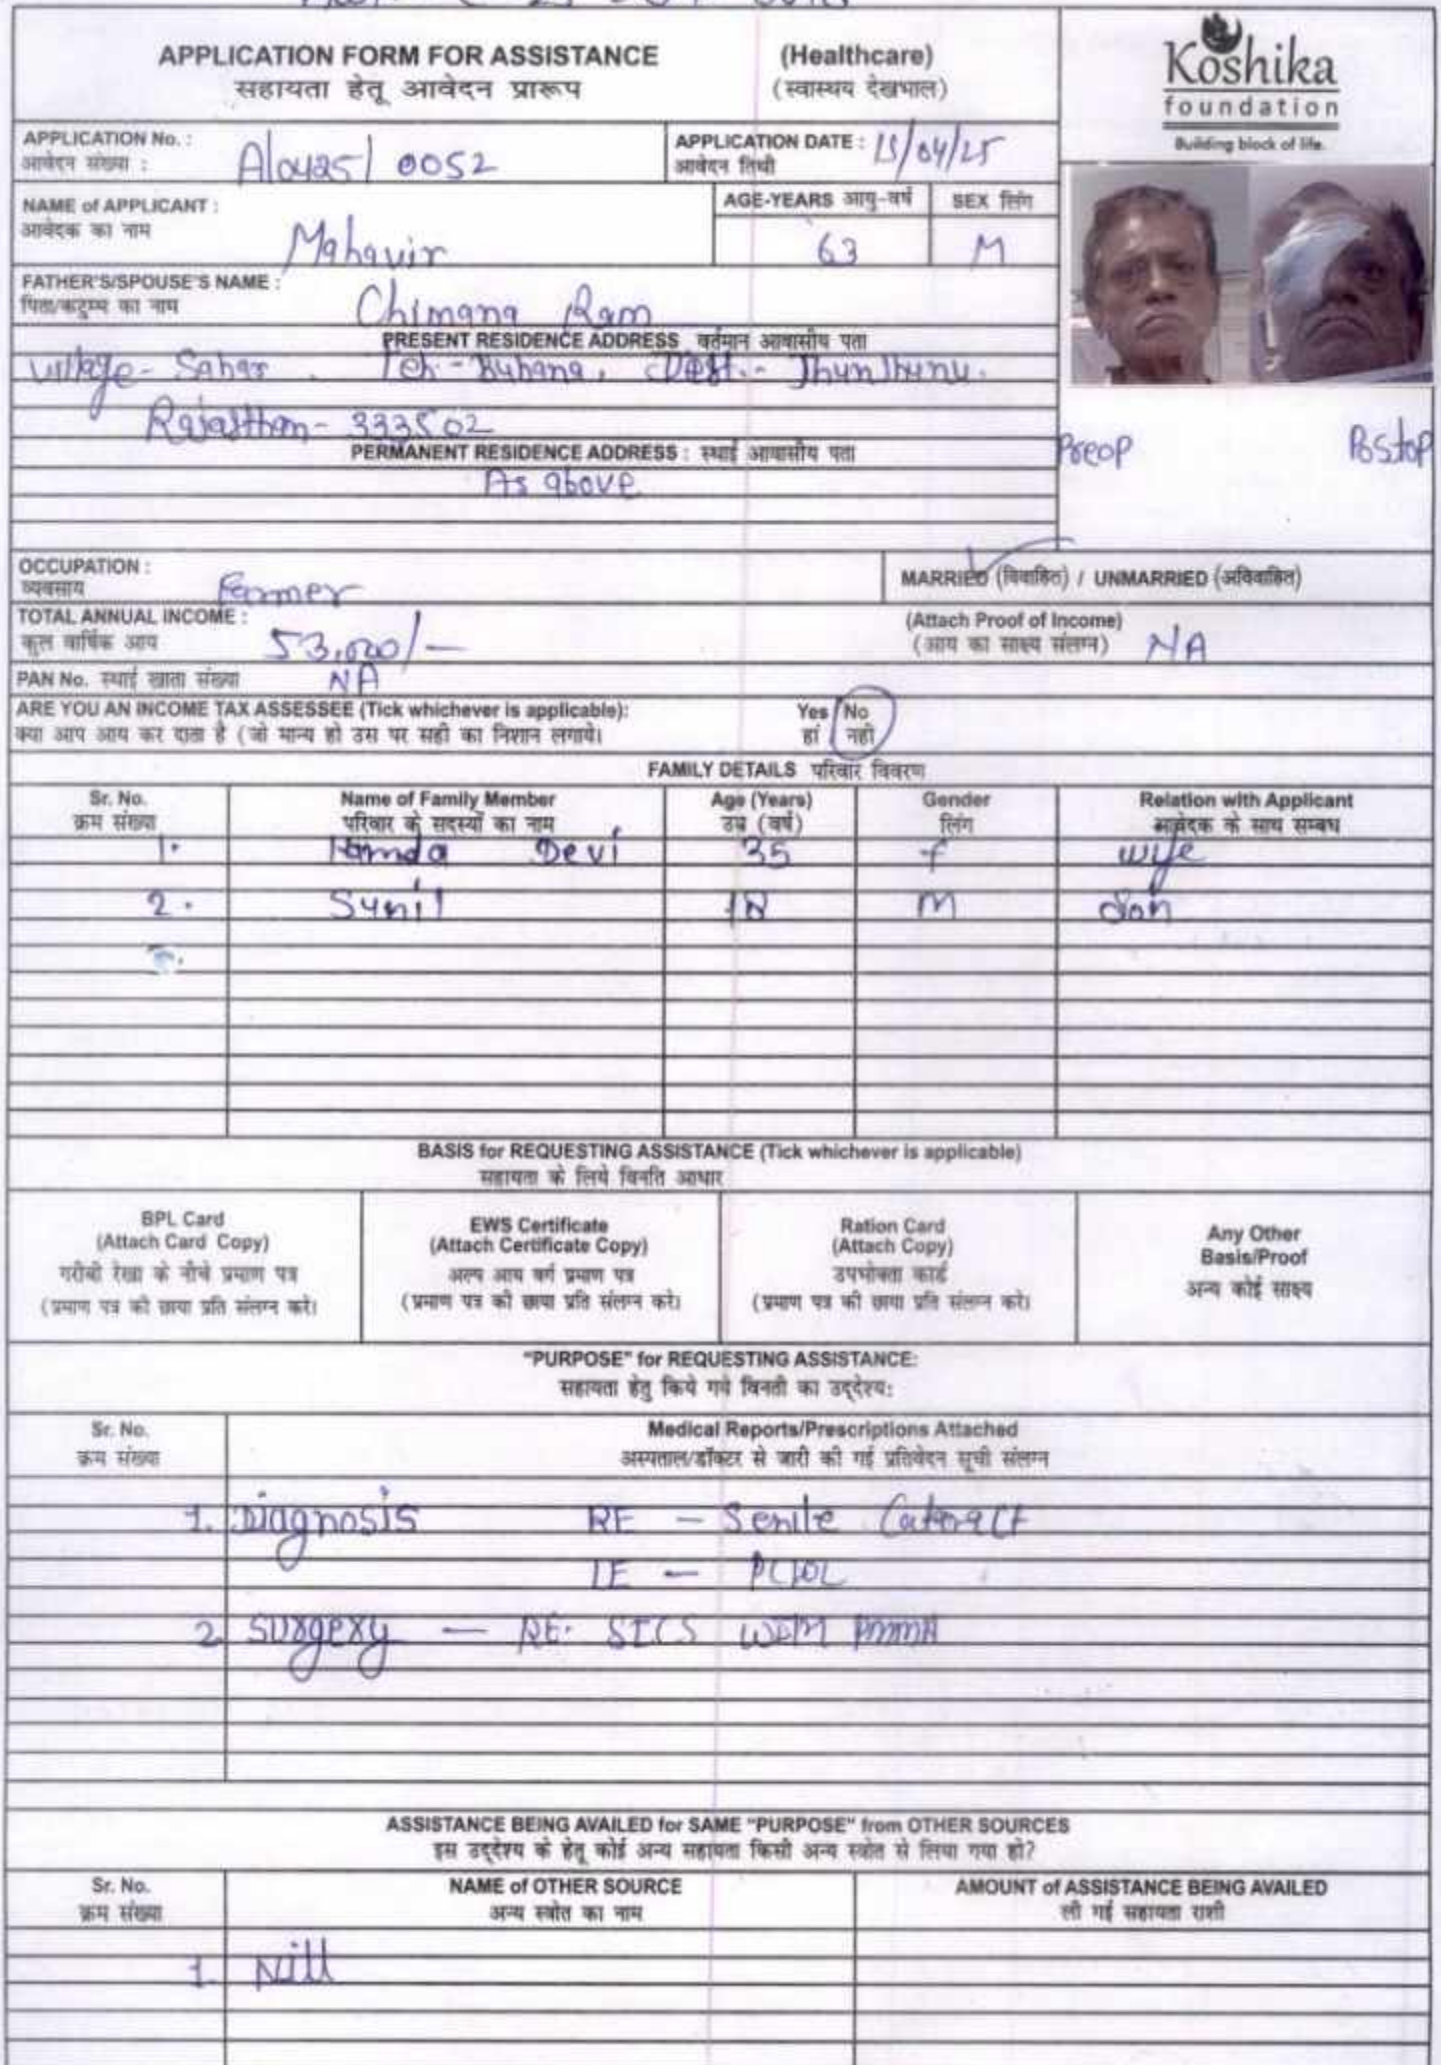 APPLICATION FORM FOR ASSISTANCE (Healthcare)
सहायता हेतू आवेदन प्रारूप (स्वास्थय देखभाल)
Koshika
foundation
Building block of life.
APPLICATION No. :
आवेदन संख्या :
A/0425/ 0052
APPLICATION DATE : 15/04/25
आवेदन तिथी
NAME of APPLICANT :
आवेदक का नाम
Mahavir
AGE-YEARS आयु-वर्ष
63
SEX लिंग
M
FATHER'S/SPOUSE'S NAME :
पिता/कटुम्य का नाम
Chimana Ram
PRESENT RESIDENCE ADDRESS वर्तमान आवासीय पता
Village- Sahar. Teh - Buhana, Dist.- Jhunjhunu.
Rajasthan- 333502
Preop Postop
PERMANENT RESIDENCE ADDRESS : स्थाई आवासीय पता
As above
OCCUPATION :
व्यवसाय
Farmer
MARRIED (विवाहित) / UNMARRIED (अविवाहित)
TOTAL ANNUAL INCOME :
कुल वार्षिक आय
53,000/-
(Attach Proof of Income)
(आय का साक्ष्य संलग्न) NA
PAN No. स्थाई खाता संख्या NA
ARE YOU AN INCOME TAX ASSESSEE (Tick whichever is applicable): Yes / No
क्या आप आय कर दाता है (जो मान्य हो उस पर सही का निशान लगाये। हां / नही
FAMILY DETAILS परिवार विवरण
Sr. No. Name of Family Member Age (Years) Gender Relation with Applicant
क्रम संख्या परिवार के सदस्यों का नाम उम्र (वर्ष) लिंग आवेदक के साथ सम्बध
1. Devi 35 f wife
2. Sunil 18 M Son
BASIS for REQUESTING ASSISTANCE (Tick whichever is applicable)
सहायता के लिये विनति आधार
BPL Card
(Attach Card Copy)
गरीबी रेखा के नीचे प्रमाण पत्र
(प्रमाण पत्र की छाया प्रति संलग्न करे।
EWS Certificate
(Attach Certificate Copy)
अल्प आय वर्ग प्रमाण पत्र
(प्रमाण पत्र की छाया प्रति संलग्न करे।
Ration Card
(Attach Copy)
उपभोक्ता कार्ड
(प्रमाण पत्र की छाया प्रति संलग्न करे।
Any Other
Basis/Proof
अन्य कोई साक्ष्य
"PURPOSE" for REQUESTING ASSISTANCE:
सहायता हेतु किये गये विनती का उद्देश्य:
Sr. No. Medical Reports/Prescriptions Attached
क्रम संख्या अस्पताल/डॉक्टर से जारी की गई प्रतिवेदन सूची संलग्न
1. Diagnosis RE - Senile Cataract
LE - PCIOL
2 Surgery - RE. SICS with PMMA
ASSISTANCE BEING AVAILED for SAME "PURPOSE" from OTHER SOURCES
इस उद्देश्य के हेतू कोई अन्य सहायता किसी अन्य स्त्रोत से लिया गया हो?
Sr. No. NAME of OTHER SOURCE AMOUNT of ASSISTANCE BEING AVAILED
क्रम संख्या अन्य स्त्रोत का नाम ली गई सहायता राशी
1. Nill